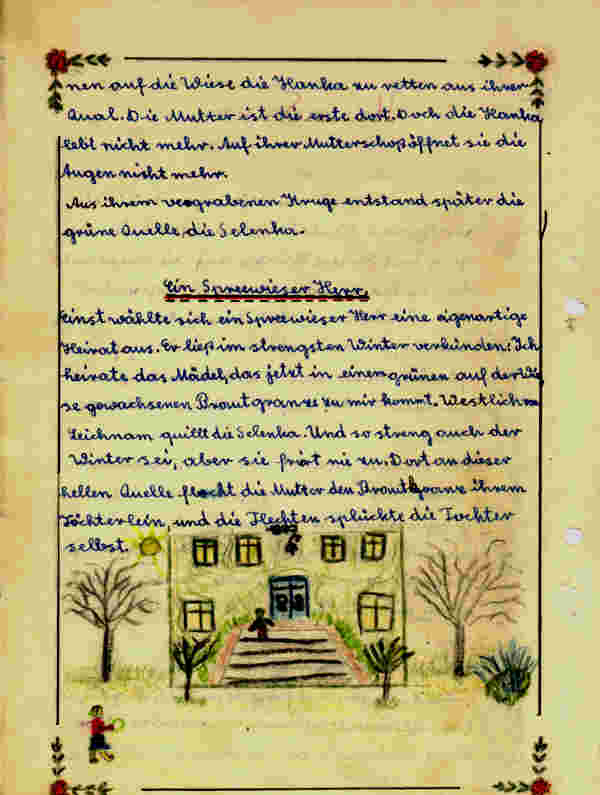 nen auf die Wiese die Hanka zu retten aus ihrer
Qual. Die Mutter ist die erste dort. Doch die Hanka
lebt nicht mehr. Auf ihrer Mutterschoß öffnet sie die
Augen nicht mehr.
Aus ihrem vergrabenen Kruge entstand später die
grüne Quelle, die Selenka.
Ein Spreewieser Herr.
Einst wählte sich ein Spreewieser Herr eine eigenartige
Heirat aus. Er ließ im strengsten Winter verkünden: Ich
heirate das Mädel, das jetzt in einem grünen auf der Wie
se gewachsenen Brautgranze zu mir kommt. Westlich von
Leichnam quillt die Selenka. Und so streng auch der
Winter sei, aber sie friert nie zu. Dort an dieser
hellen Quelle flocht die Mutter den Brautkranz ihrem
Töchterlein, und die Flechten splückte die Tochter
selbst.